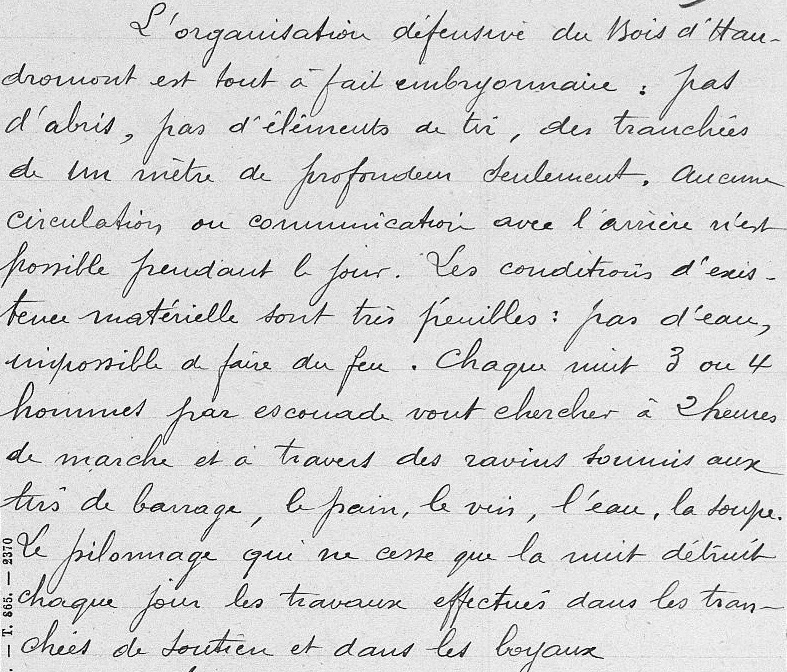 L'organisation défensive du Bois d'Hau-
dromont est tout à fait embryonnaire : pas
d'abris, pas d'éléments de tir, des tranchées
de un mètre de profondeur seulement. Aucune
circulation ou communication avec l'arrière n'est
possible pendant le jour. Les conditions d'exis-
tence matérielle sont très pénibles : pas d'eau,
impossible de faire du feu. Chaque nuit 3 ou 4
hommes par escouade vont chercher à 2 heures
de marche et à travers des ravins soumis aux
tirs de barrage, le pain, le vin, l'eau, la soupe.
Le pilonnage qui ne cesse que la nuit détruit
chaque jour les travaux effectués dans les tran-
chées de soutien et dans les boyaux
— T. 865. — 2370